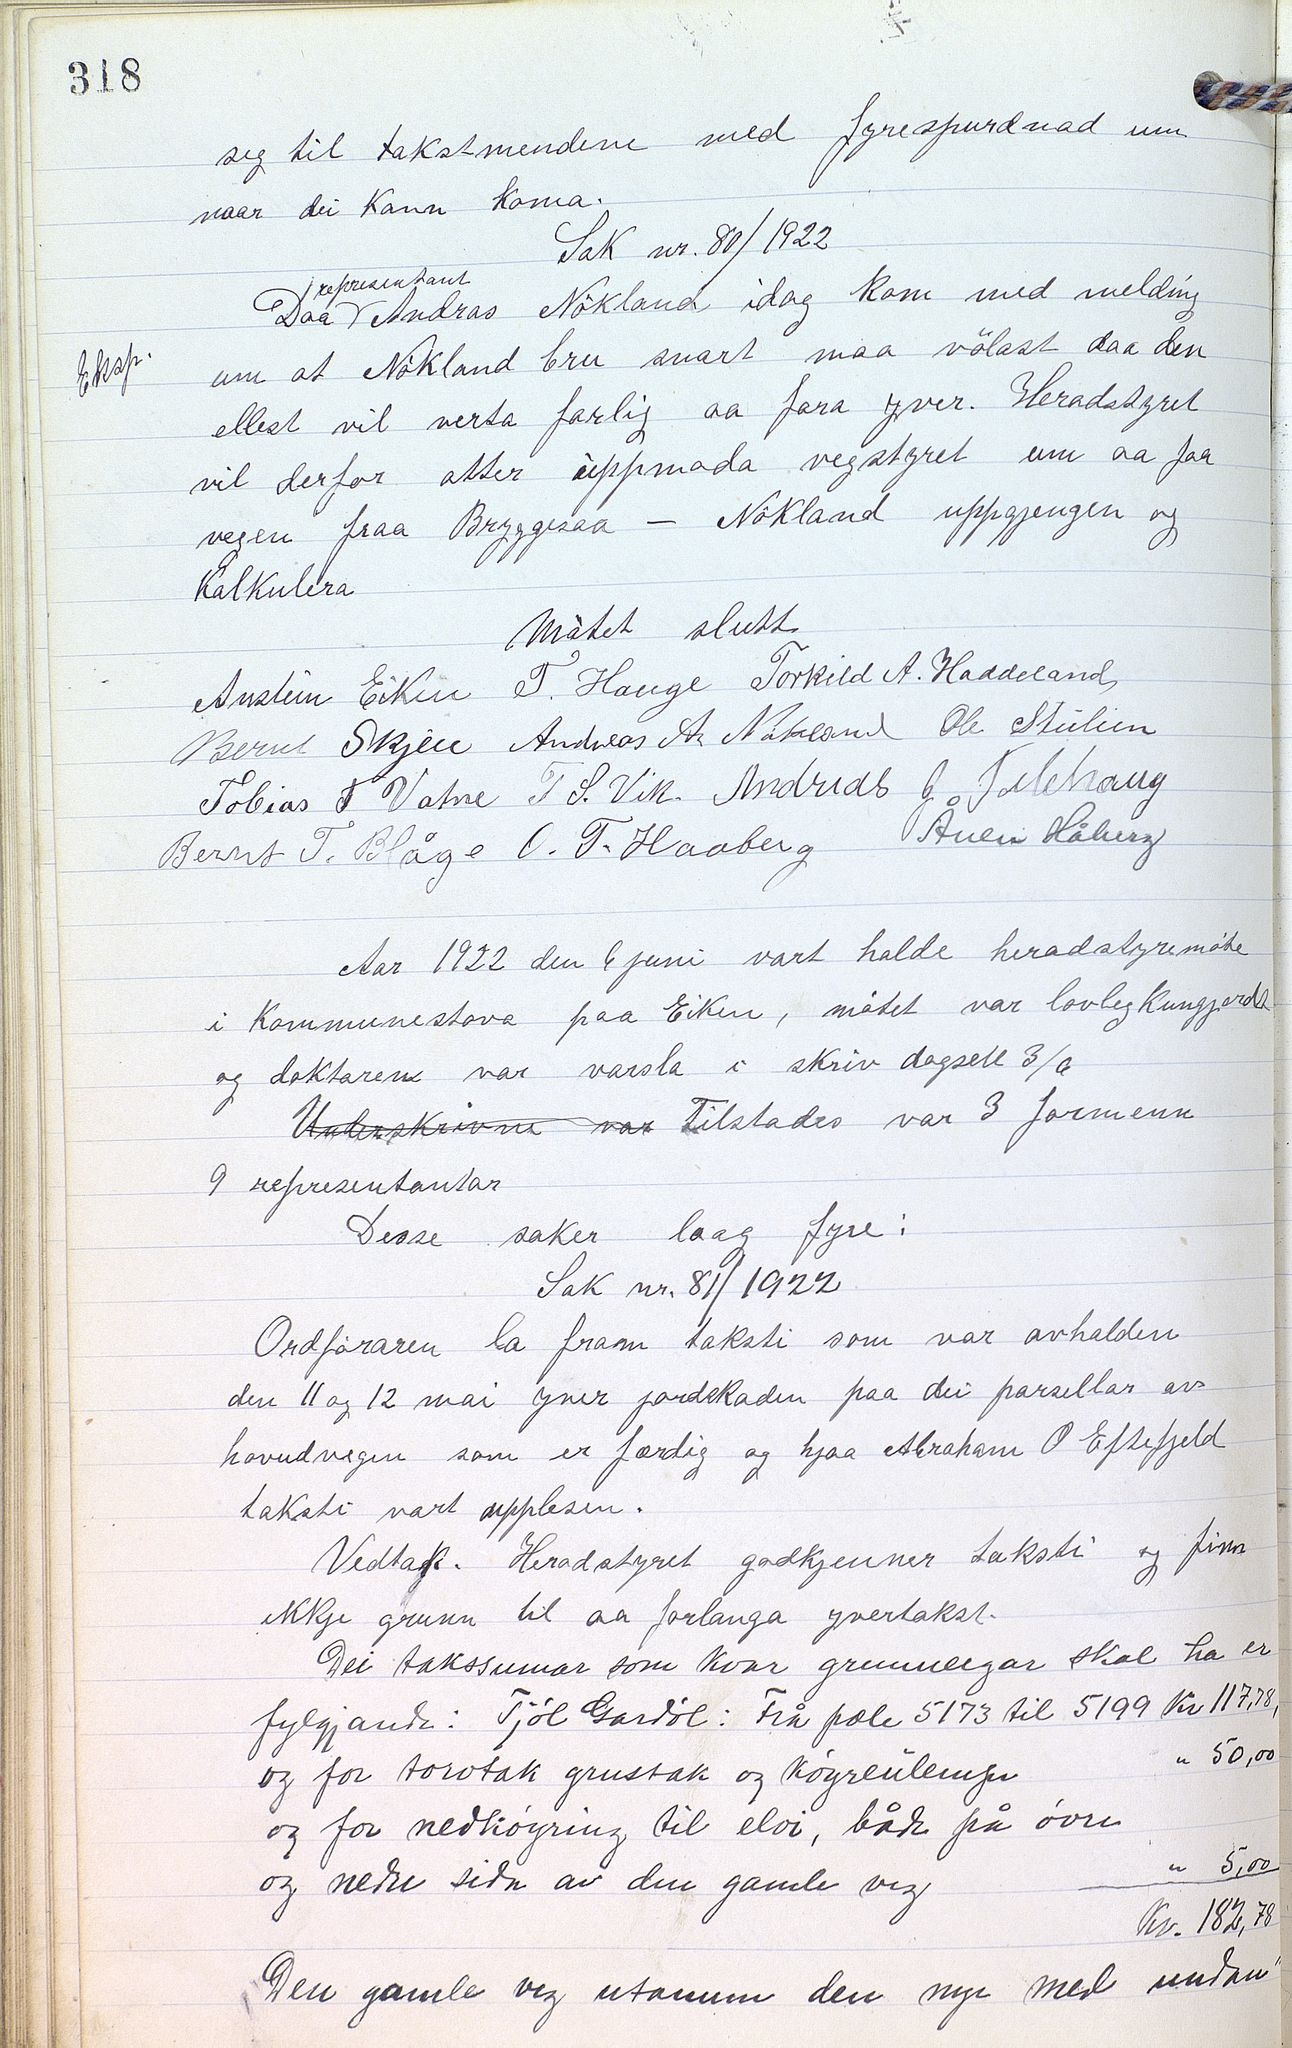 318
seg til takstmendene med fyrespurdnad um
naar dei kann koma.
Sak nr. 80/1922
representant
Daa Andras Nökland idag kom med melding
Eksp.
um at Nökland bru snart maa völast daa den
ellest vil verta farlig aa fara yver. Heradstyret
vil derfor atter uppmoda vegstyret um aa faa
vegen fraa Bryggesaa - Nökland uppgjengen og
kalkulera
Mötet slutt
Anstein Eiken T. Hauge Torkild A. Haddeland
Bernt Skjeie Andreas A. Nökland Ole Stulien
Tobias T Vatne T S. Vik. Andreas
Bernt T. Blåge O. T. Haaberg Ånen Håberg
Aar 1922 den 6 juni vart halde heradstyremöte
i Kommunestova paa Eiken, mötet var lovleg Kungjordt
og doktaren var varsla i skriv dagsett 3/6
Underskrivne var Tilstades var 3 formenn
9 representantar
Desse saker laag fyre:
Sak nr. 81/1922
Ordföraren la fram taksti som var avhalden
den 11 og 12 mai yver jordskaden paa dei parsellar av
hovudvegen som er færdig og hjaa Abraham O Eftefjeld
taksti vart upplesen.
Vedtak. Heradstyret godkjenner taksti og finn
ikkje grunn til aa forlanga yvertakst.
Dei takssumar som kvar grunneigar skal ha er
fylgjande: Tjöl Gardöl: Frå pæle 5173 til 5199 Kr 117,78,
og for torvtak grustak og köyreulempe " 50,00
og for nedköyring til elvi, både på övre
og nedre sida av den gamle veg " 5,00
Kr. 182,78
Den gamle veg utanum den nye med undan